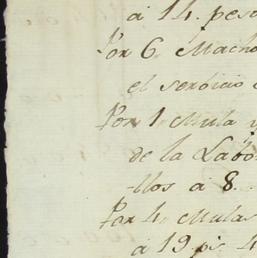 á 14. peso
Por 6. Macho
el serbicio
Por 1. Mula
de la Labo
llos á 8.
Por 4. Mulas
á 19 ps. 4